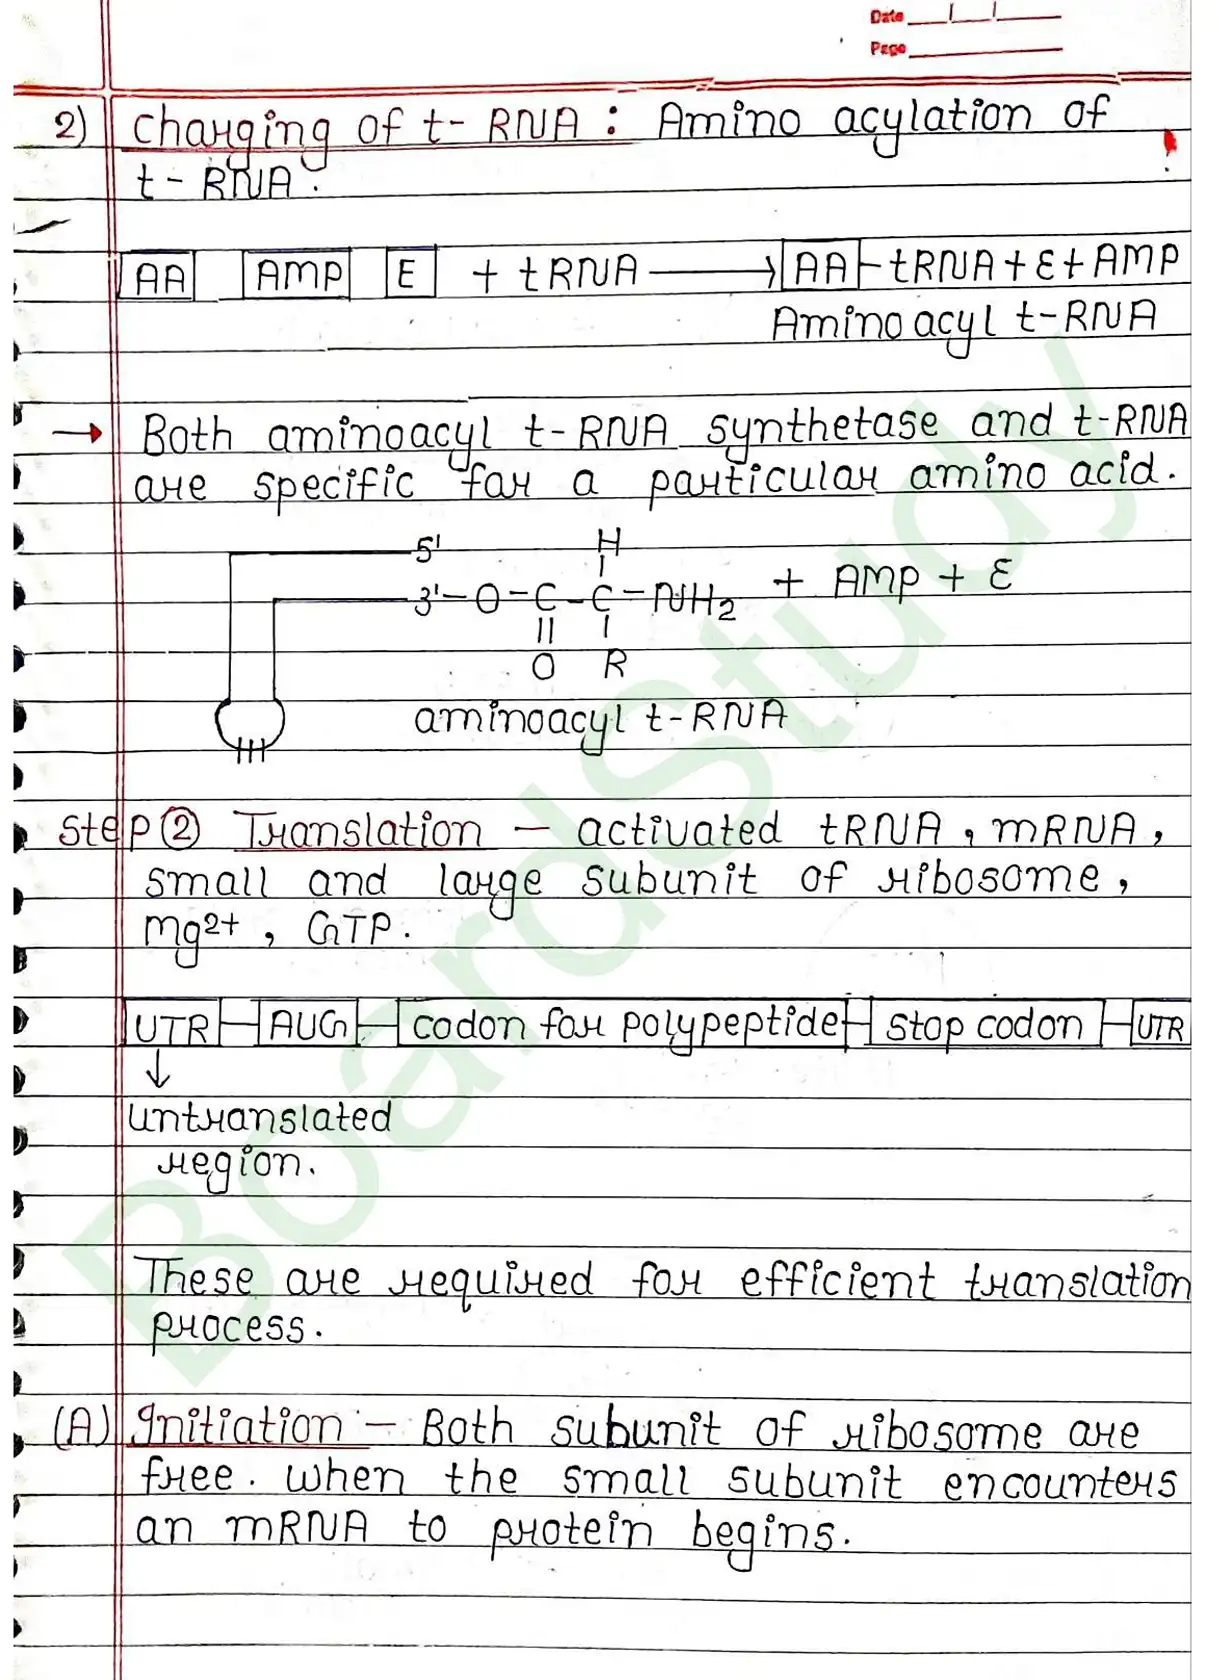 Date
Page
2) Charging of t-RNA : Amino acylation of
t-RNA.
AA AMP E + tRNA → AA-tRNA+E+AMP
Aminoacyl t-RNA
→ Both aminoacyl t-RNA synthetase and t-RNA
are specific for a particular amino acid.
5' H
3'-O-C-C-NH2 + AMP + E
O R
aminoacyl t-RNA
Step ② Translation - activated tRNA, mRNA,
small and large subunit of ribosome,
Mg2+, GTP.
UTR - AUG - codon for polypeptide - stop codon - UTR
↓
untranslated
region.
These are required for efficient translation
process.
(A) Initiation - Both subunit of ribosome are
free. When the small subunit encounters
an mRNA to protein begins.
BoardStudy